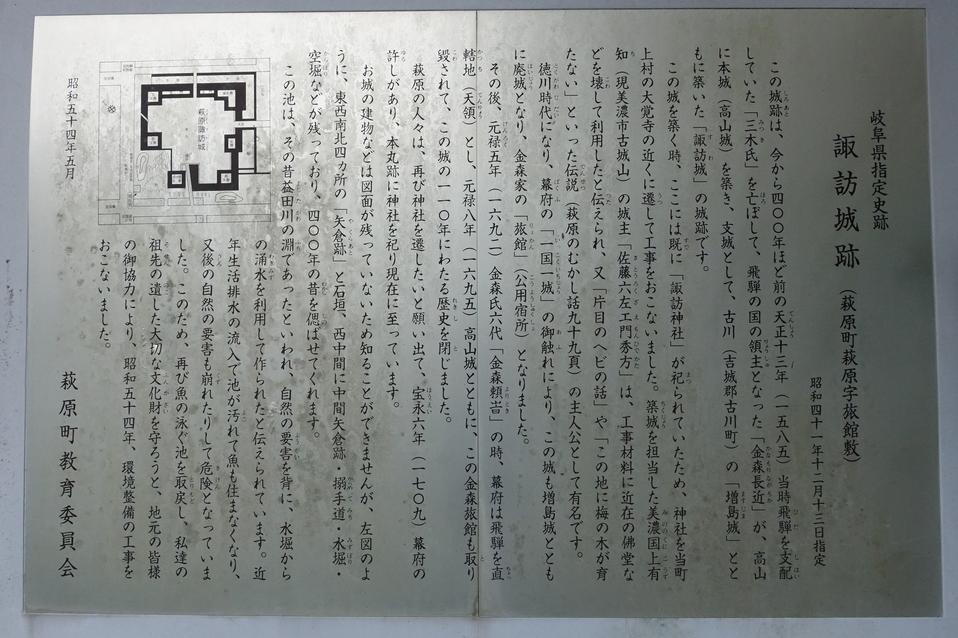 岐阜県指定史跡
諏訪城跡 （萩原町萩原字旅館敷）
昭和四十一年十二月十三日指定
この城跡は、今から四〇〇年ほど前の天正十三年（一五八五）当時飛騨を支配
していた「三木氏」を亡ぼして、飛騨の国の領主となった「金森長近」が、高山
に本城（高山城）を築き、支城として、古川（吉城郡古川町）の「増島城」とと
もに築いた「諏訪城」の城跡です。
この城を築く時、ここには既に「諏訪神社」が祀られていたため、神社を当町
上村の大覚寺の近くに遷して工事をおこないました。築城を担当した美濃国上有
知（現美濃市古城山）の城主「佐藤六左エ門秀方」は、工事材料に近在の佛堂な
どを壊して利用したと伝えられ、又「片目のヘビの話」や「この地に梅の木が育
たない」といった伝説（萩原のむかし話九十九頁）の主人公として有名です。
徳川時代になり、幕府の「一国一城」の御触れにより、この城も増島城ととも
に廃城となり、金森家の「旅館」（公用宿所）となりました。
その後、元禄五年（一六九二）金森氏六代「金森頼旹」の時、幕府は飛騨を直
轄地（天領）とし、元禄八年（一六九五）高山城とともに、この金森旅館も取り
毀されて、この城の一一〇年にわたる歴史を閉じました。
萩原の人々は、再び神社を遷したいと願い出て、宝永六年（一七〇九）幕府の
許しがあり、本丸跡に神社を祀り現在に至っています。
お城の建物などは図面が残っていないため知ることができませんが、左図のよ
うに、東西南北四カ所の「矢倉跡」と石垣、西中間に中間矢倉跡・搦手道・水堀・
空堀などが残っており、四〇〇年の昔を偲ばせてくれます。
この池は、その昔益田川の淵であったといわれ、自然の要害を背に、水堀から
の涌水を利用して作られたと伝えられています。近
年生活排水の流入で池が汚れて魚も住まなくなり、
又後の自然の要害も崩れたりして危険となっていま
した。このため、再び魚の泳ぐ池を取戻し、私達の
祖先の遺した大切な文化財を守ろうと、地元の皆様
の御協力により、昭和五十四年、環境整備の工事を
おこないました。
萩原町教育委員会
萩原諏訪城
昭和五十四年五月